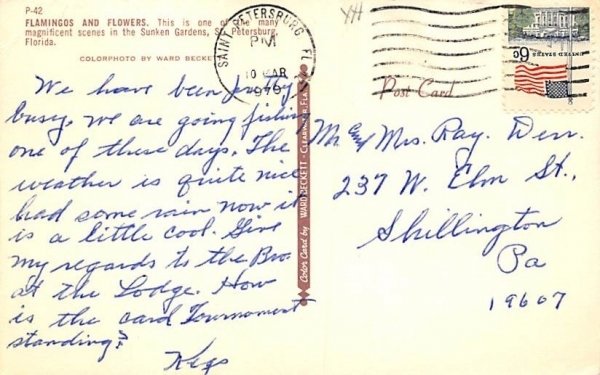 P-42
FLAMINGOS AND FLOWERS. This is one of the many
magnificent scenes in the Sunken Gardens, St. Petersburg,
Florida.
COLORPHOTO BY WARD BECKETT
SAINT PETERSBURG FL
PM
10 MAR
1970
6c
UNITED STATES
Post Card
We have been pretty
busy. We are going fishing
one of these days. The
weather is quite nice
had some rain now it
is a little cool. Give
my regards to the Bro.
at the Lodge. How
is the card Tournament
standing?
Color Card by WARD BECKETT - CLEARWATER, FLA.
Mr. and Mrs. Ray. Derr.
237 W. Elm St.,
Shillington
Pa
19607